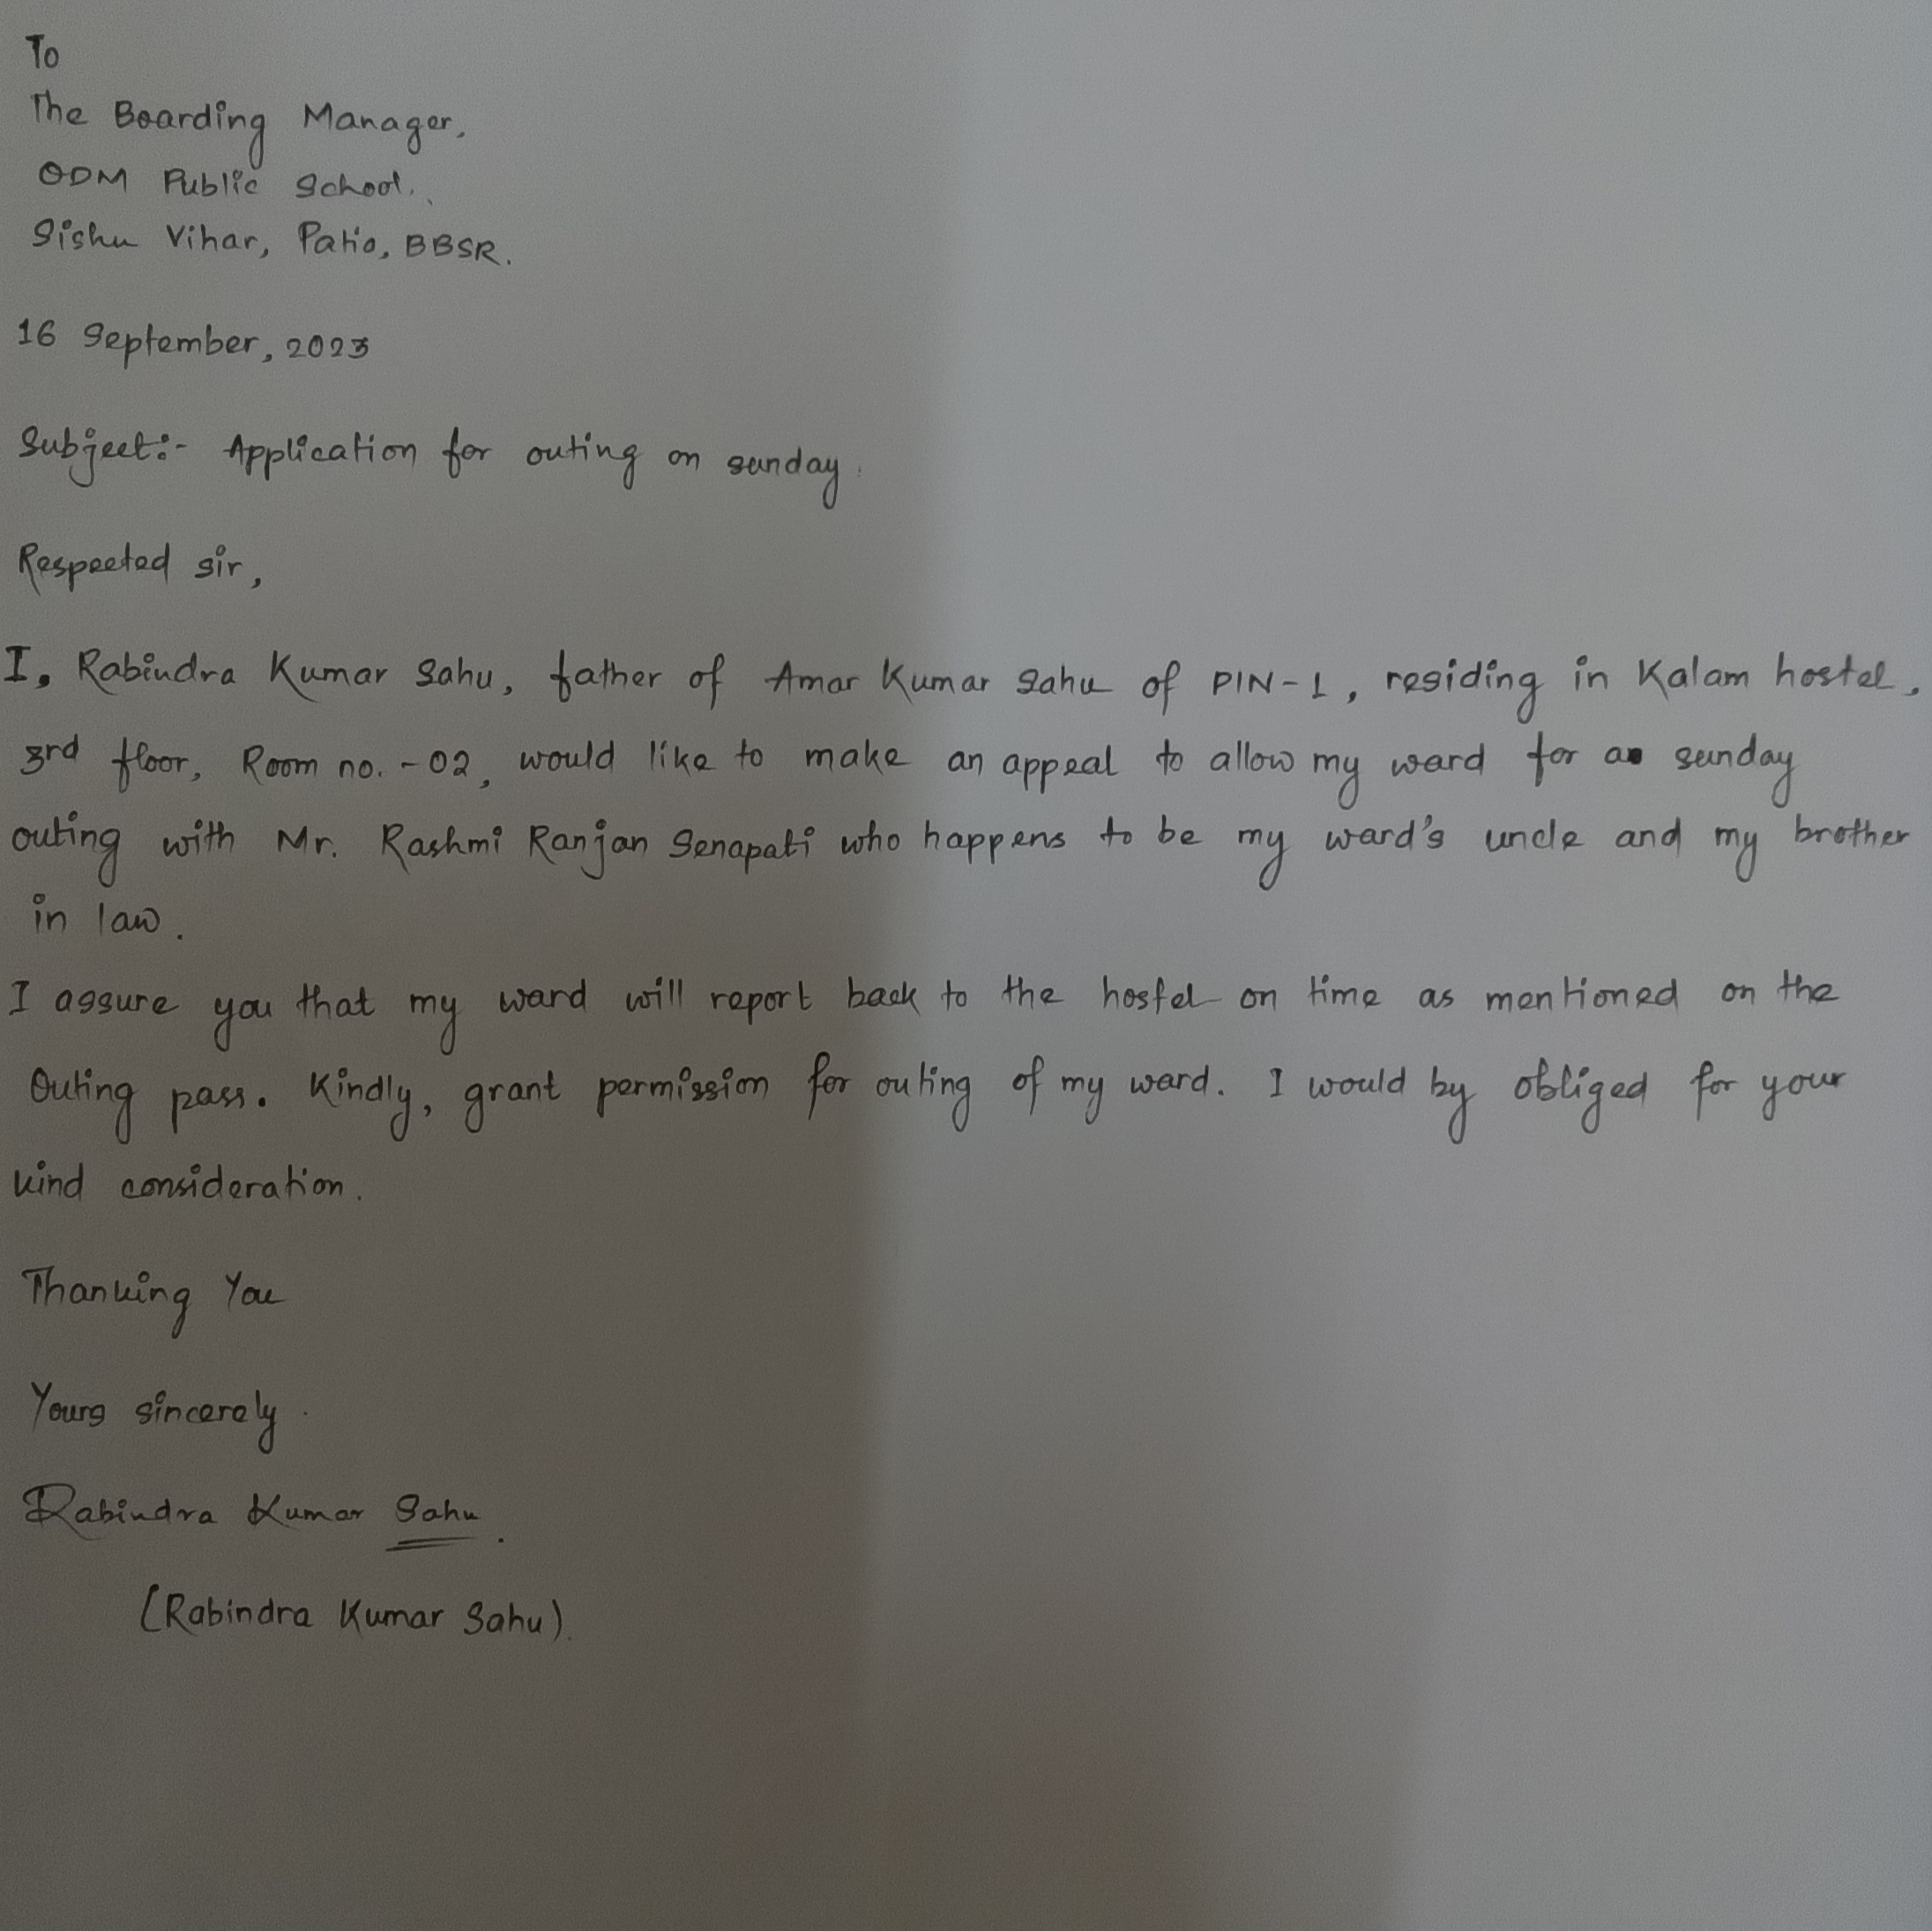 To
The Boarding Manager,
ODM Public School,
Sishu Vihar, Patia, BBSR.
16 September, 2023
Subject:- Application for outing on sunday.
Respected sir,
I, Rabindra Kumar Sahu, father of Amar Kumar Sahu of PIN-1, residing in Kalam hostel,
3rd floor, Room no. -02, would like to make an appeal to allow my ward for a sunday
outing with Mr. Rashmi Ranjan Senapati who happens to be my ward's uncle and my brother
in law.
I assure you that my ward will report back to the hostel on time as mentioned on the
Outing pass. Kindly, grant permission for outing of my ward. I would by obliged for your
kind consideration.
Thanking You
Yours sincerely.
Rabindra Kumar Sahu.
(Rabindra Kumar Sahu).